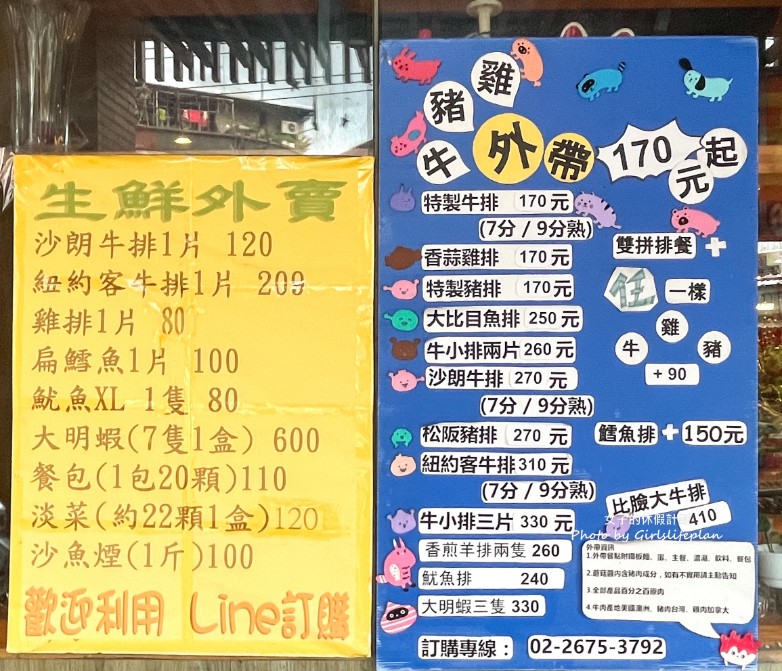 生鮮外賣
沙朗牛排1片 120
紐約客牛排1片 209
雞排1片 80
扁鱈魚1片 100
魷魚XL 1隻 80
大明蝦(7隻1盒) 600
餐包(1包20顆)110
淡菜(約22顆1盒)120
沙魚煙(1斤)100
歡迎利用 Line訂購
牛豬雞 外帶 170元起
特製牛排 170 元
(7分 / 9分熟)
香蒜雞排 170 元
特製豬排 170 元
大比目魚排 250 元
牛小排兩片 260 元
沙朗牛排 270 元
(7分 / 9分熟)
松阪豬排 270 元
紐約客牛排 310 元
(7分 / 9分熟)
牛小排三片 330 元
香煎羊排兩隻 260
魷魚排 240
大明蝦三隻 330
訂購專線： 02-2675-3792
雙拼排餐 +
任 一樣
雞
牛 豬
+ 90
鱈魚排 + 150元
比臉大牛排
410
女子的休假計
Girlslifeplan
外帶資訊
1.外帶餐點附鐵板麵、蛋、主餐、濃湯、飲料、餐包
2.蘑菇醬內含豬肉成分，如有不食用請主動告知
3.全部產品百分之百原肉
4.牛肉產地美國澳洲、豬肉台灣、雞肉加拿大